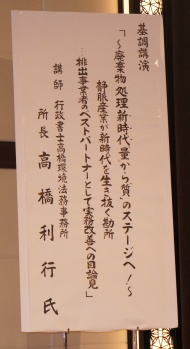 基調講演
「～廃棄物処理新時代 “量から質”のステージへ！～
静脈産業が新時代を生き抜く勘所
…排出事業者のベストパートナーとして実務改善への目論見」
講師 行政書士高橋環境法務事務所
所長 高橋利行氏